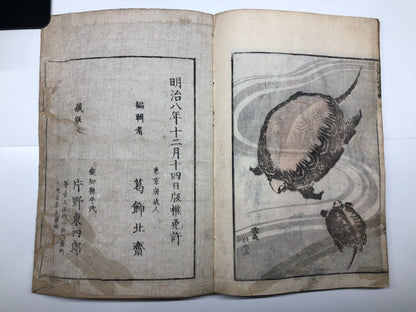 明治八年十二月十四日版權免許
編輯者
東京府故人
葛飾北齋
藏版人
愛知縣平民
片野東四郎